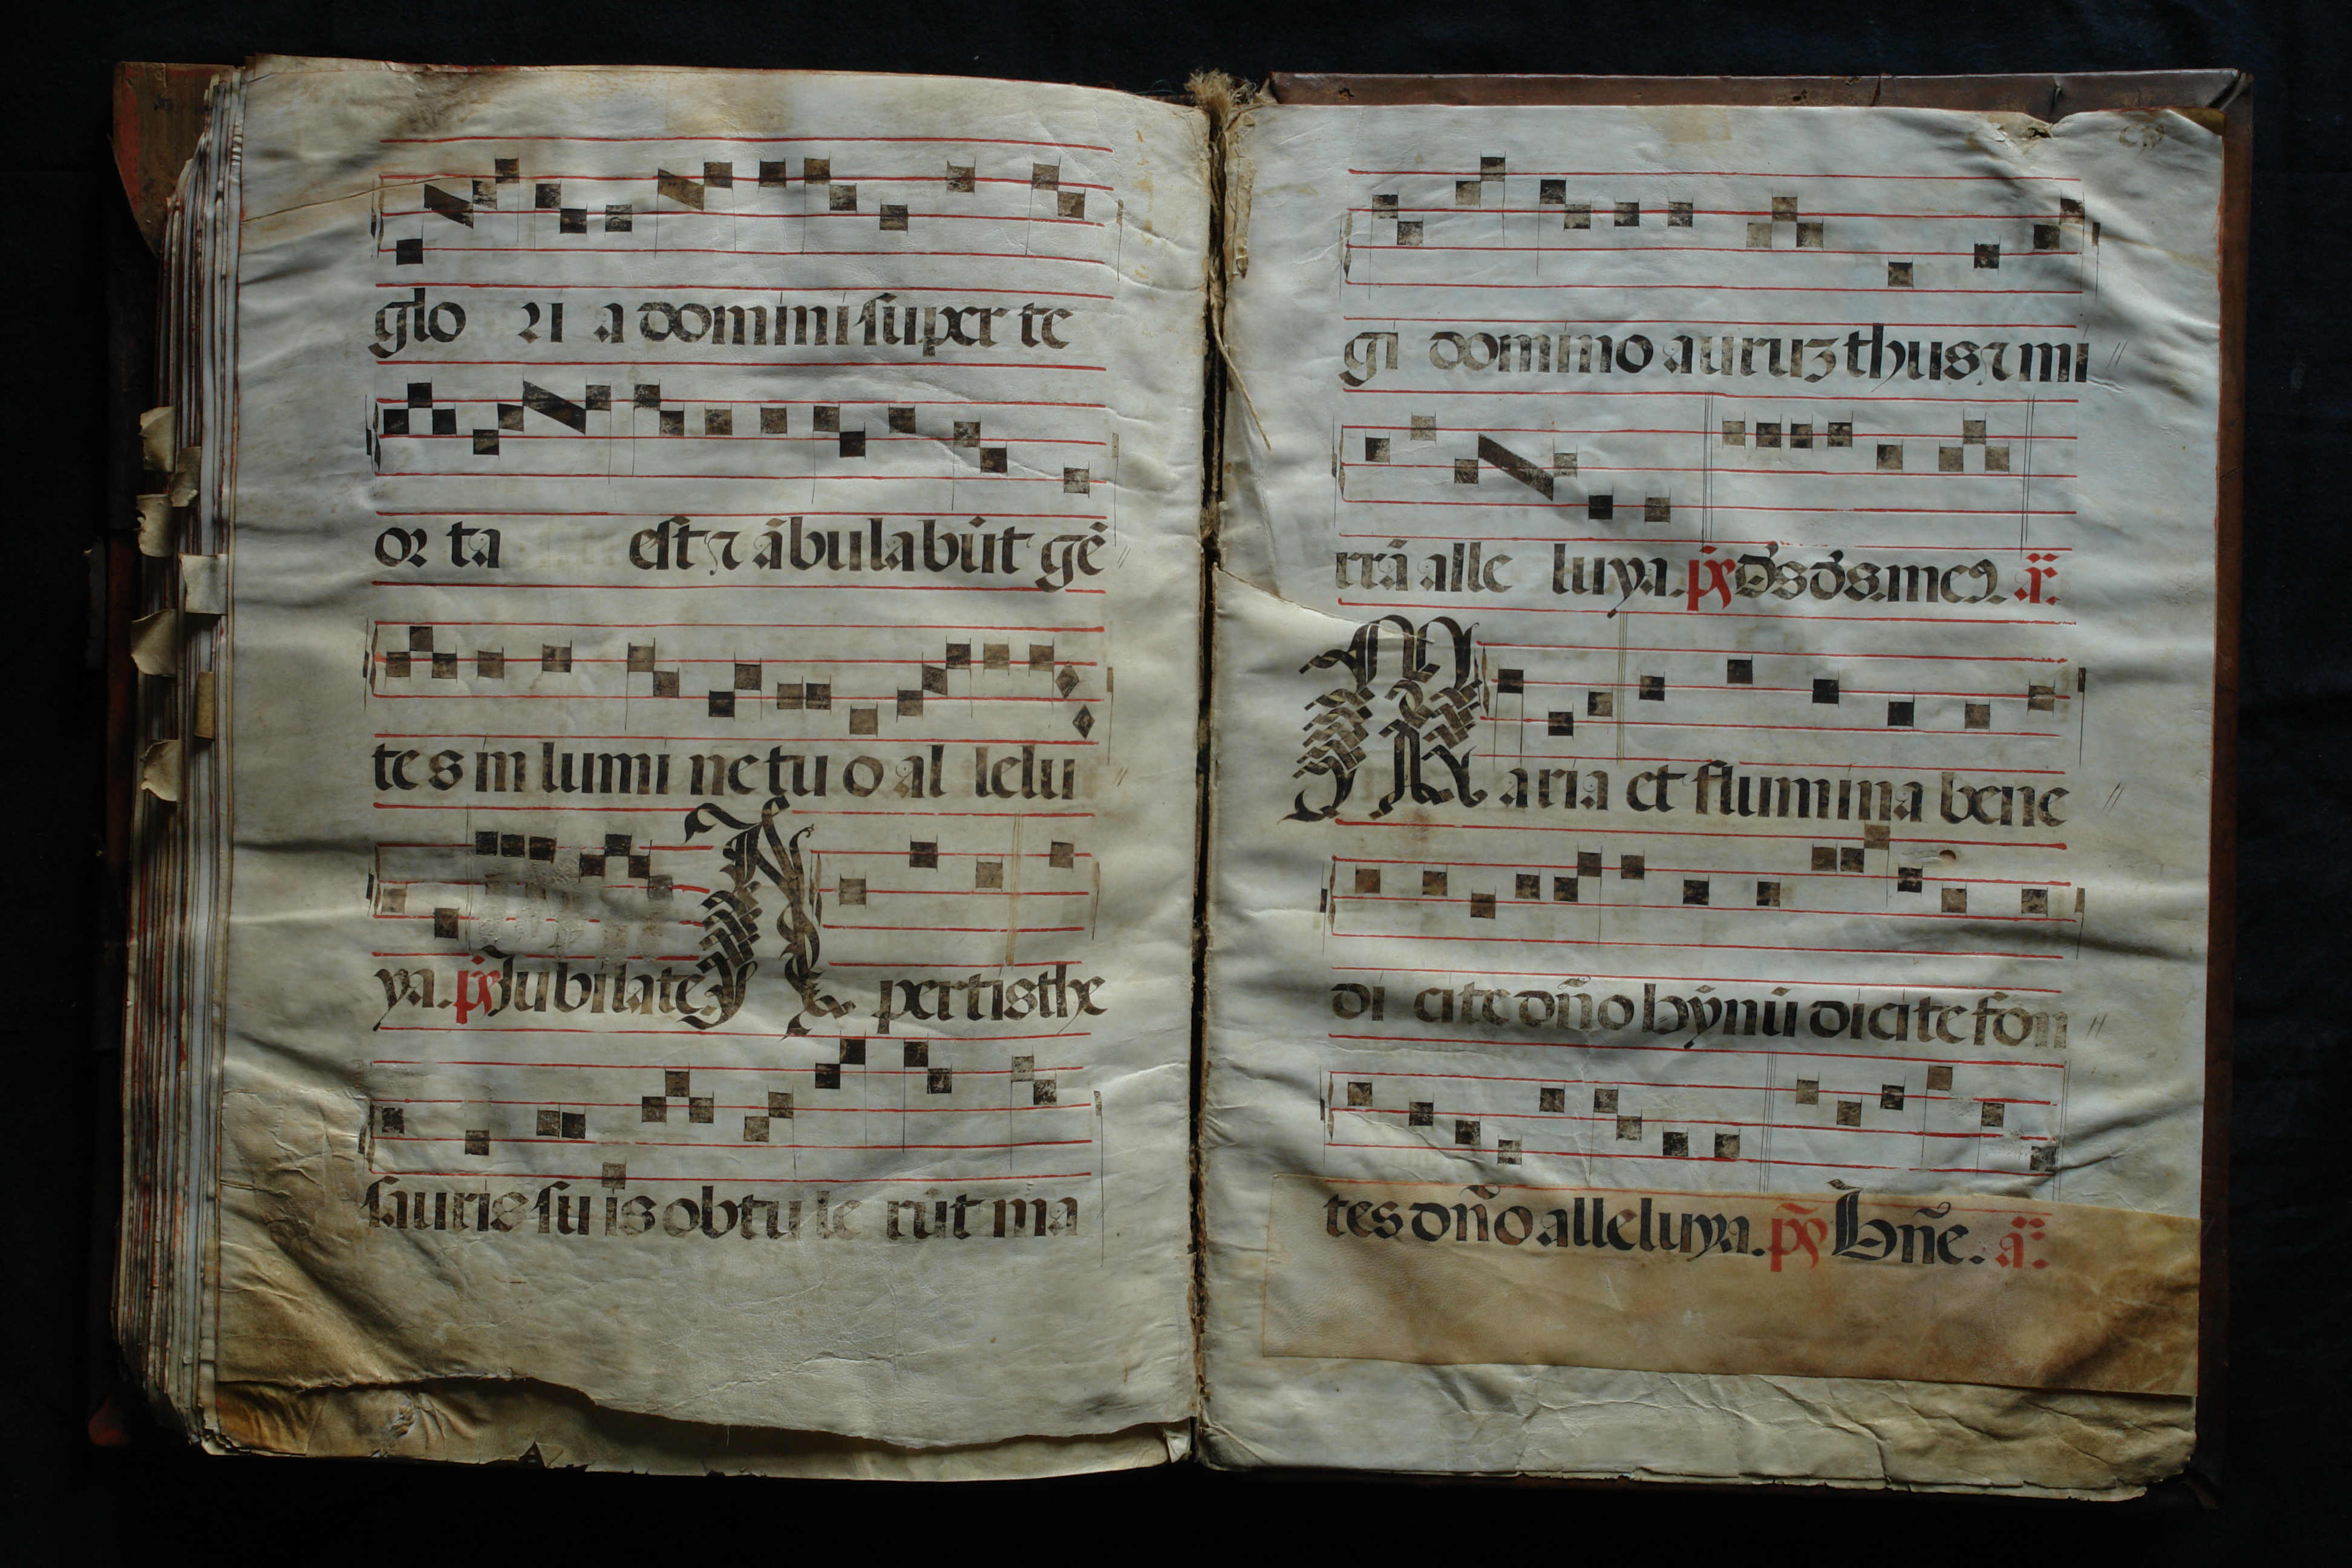 glo ri a domini super te
or ta est ⁊ ābulabūt gē
tes in lumi ne tu o al lelu
ya. ps̄ Jubilate. A pertis the
sauris su is obtu le rūt ma
gi domino auruz thus ⁊ mi
rrā alle luya. ps̄ Ds̄ ds̄. meꝰ. añ.
M aria et flumina bene
di cite dn̄o hȳnū dicite fon
tes dn̄o alleluya. ps̄ Bn̄e. añ.